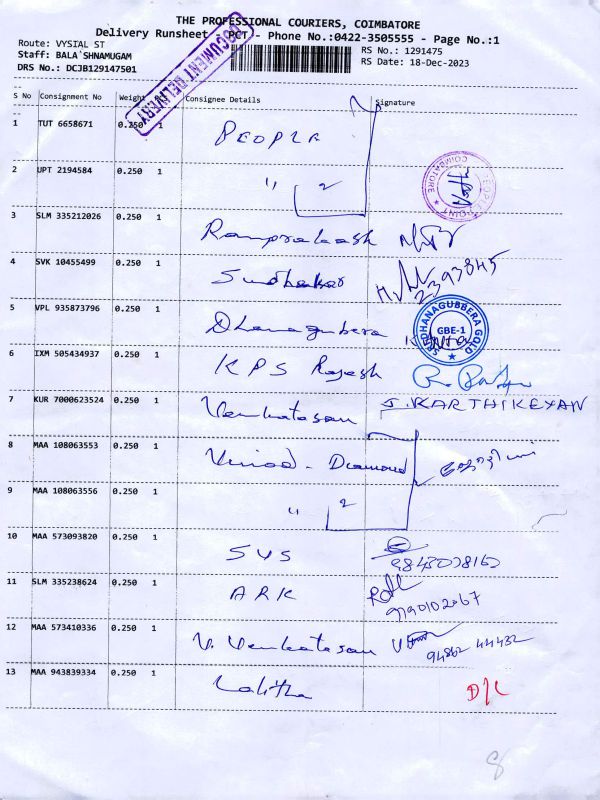 THE PROFESSIONAL COURIERS, COIMBATORE
Delivery Runsheet (PCT)- Phone No.:0422-3505555 - Page No.:1
Route: VYSIAL ST
RS No.: 1291475
Staff: BALA`SHNAMUGAM
RS Date: 18-Dec-2023
DRS No.: DCJB129147501
DOCUMENT DELIVERY
S No Consignment No Weight Consignee Details Signature
1 TUT 6658671 0.250 1 PEOPLE
2 UPT 2194584 0.250 1 " 2
PEOPLE POINT COIMBATORE
3 SLM 335212026 0.250 1 Ramprakash
4 SVK 10455499 0.250 1 Sudhakar 2393845
5 VPL 935873796 0.250 1 Dhanagubera
SRI DHANAGUBBERA GOLD GBE-1
6 IXM 505434937 0.250 1 KPS Rajesh
7 KUR 7000623524 0.250 1 Venkatasan J.KARTHIKEYAN
8 MAA 108063553 0.250 1 Vinod - Diamond
9 MAA 108063556 0.250 1 " 2
10 MAA 573093820 0.250 1 SVS
11 SLM 335238624 0.250 1 ARK
12 MAA 573410336 0.250 1 V. Venkatasan 94862 44432
13 MAA 943839334 0.250 1 Lalitha D/L
8